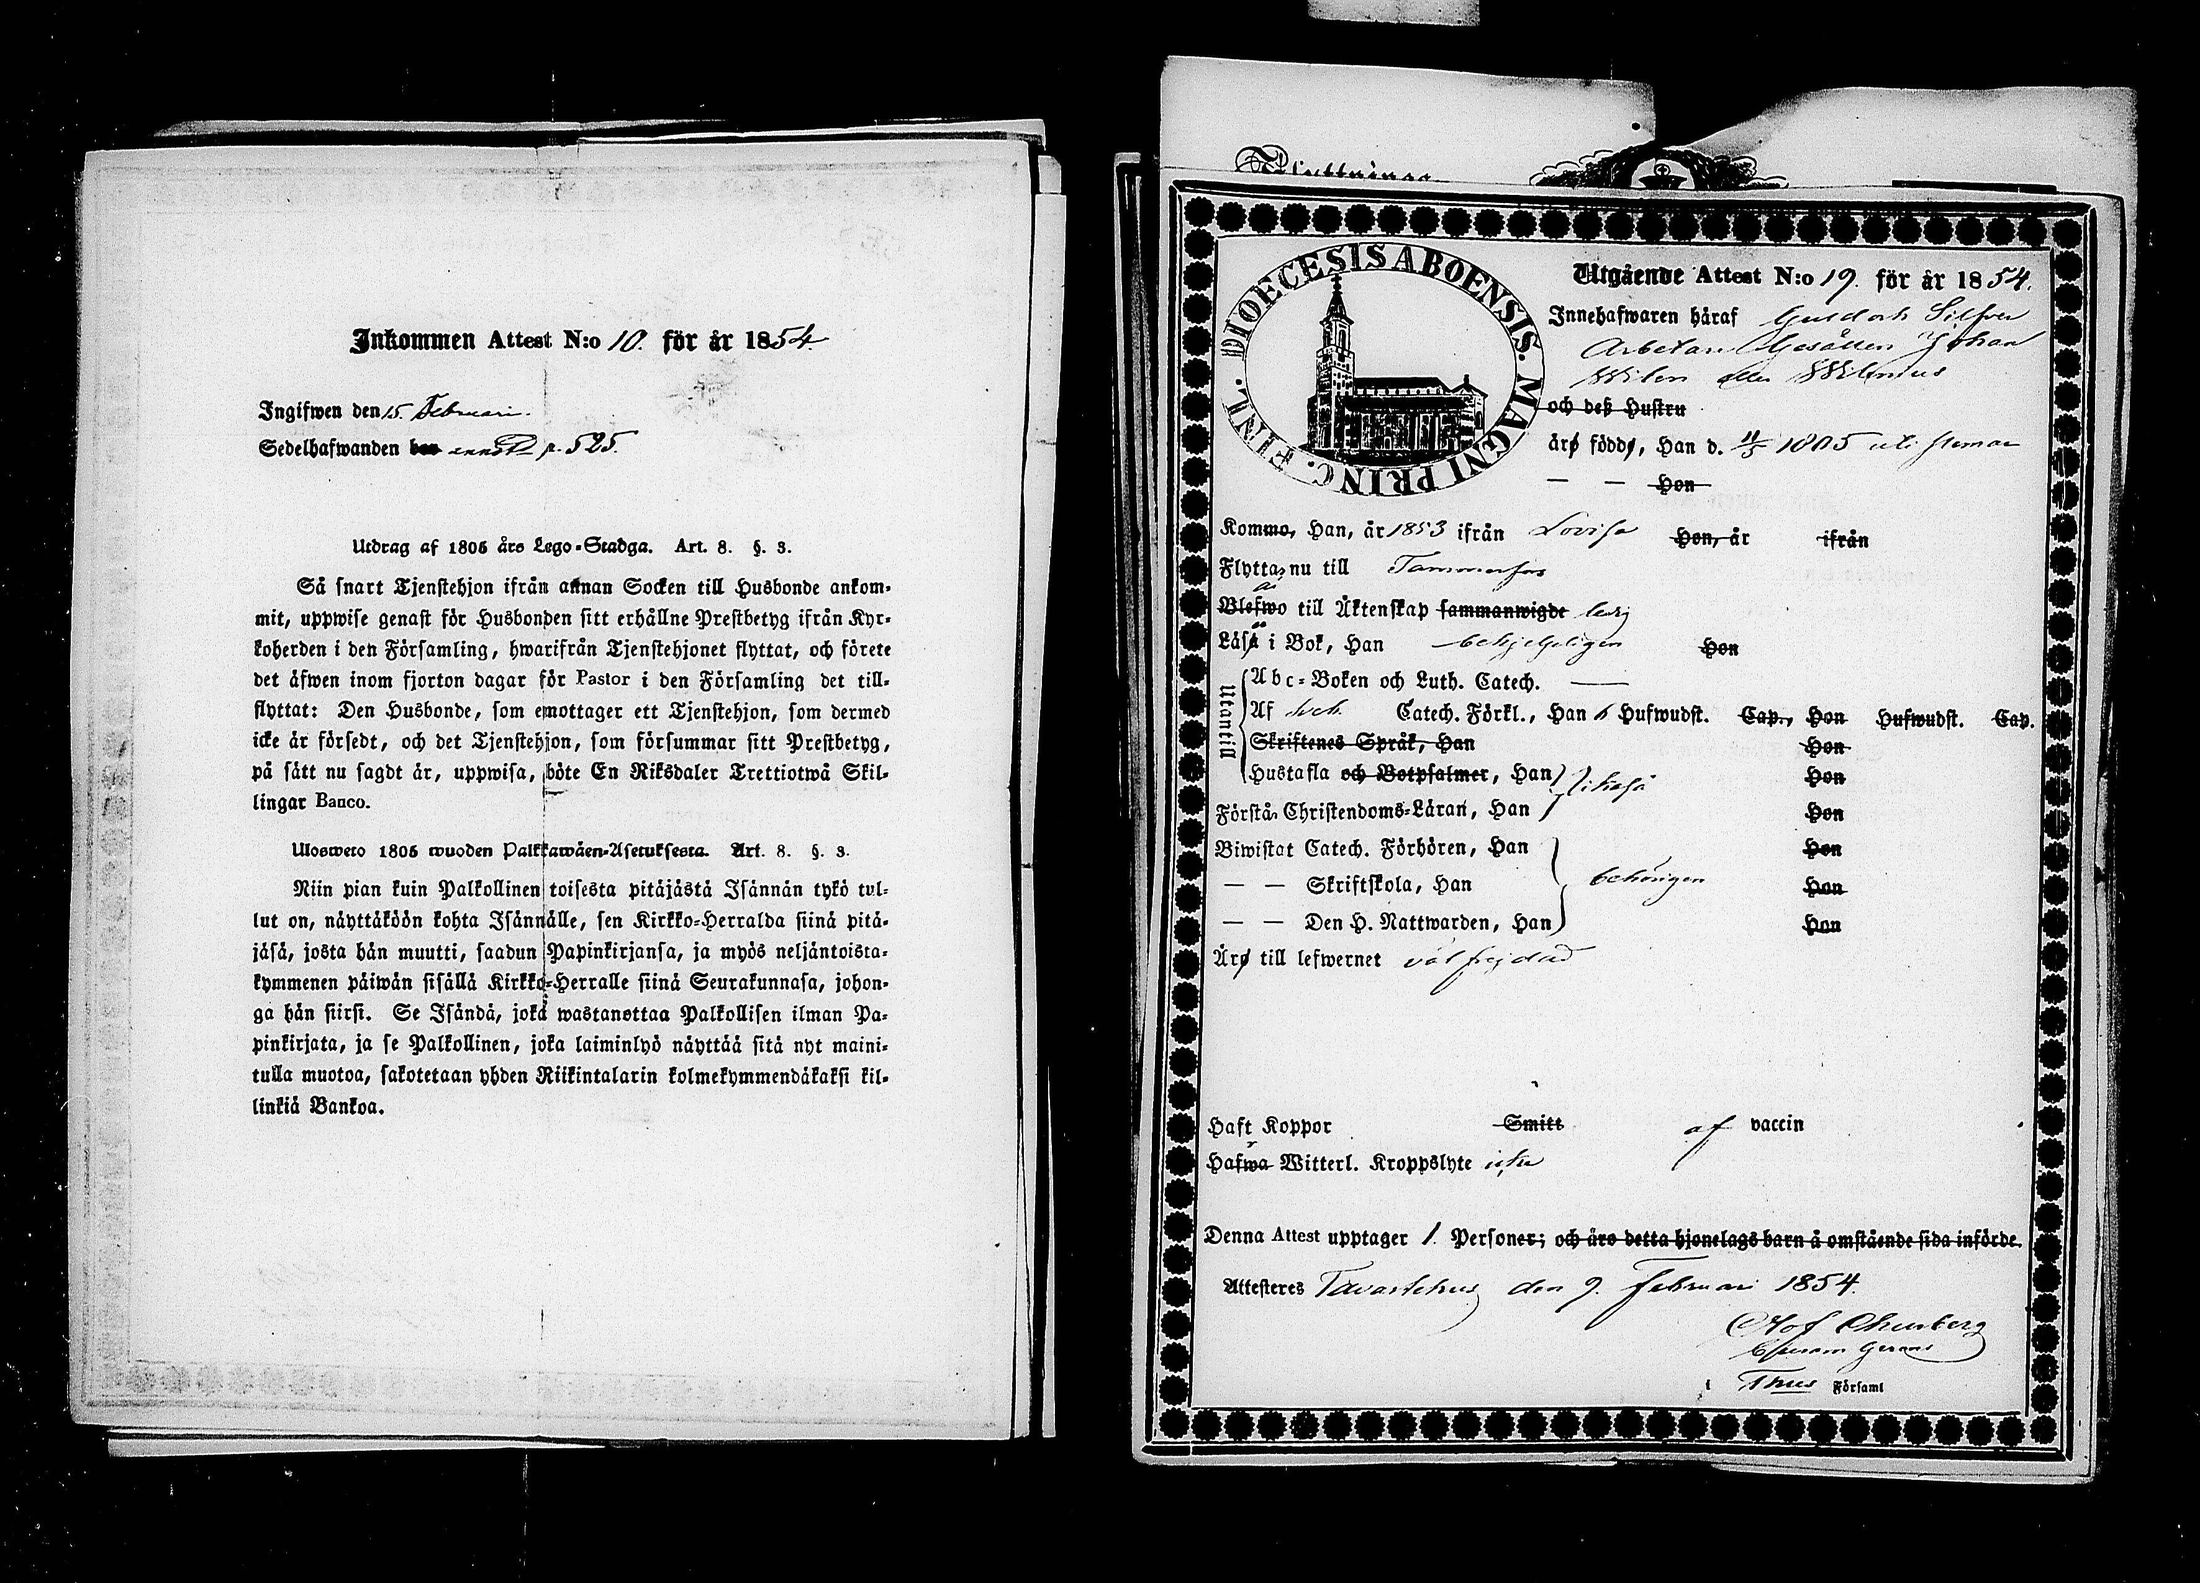 Inkommen Attest N:o 10. för år 1854.
Ingifwen den 15. Februari.
Sedelhafwanden p. 525.
Utdrag af 1805 års Lego-Stadga. Art. 8. §. 3.
Så snart Tjenstehjon ifrån annan Socken till Husbonde ankom-
mit, uppwise genast för Husbonden sitt erhållne Prestbetyg ifrån Kyr-
koherden i den Församling, hwarifrån Tjenstehjonet flyttat, och förete
det äfwen inom fjorton dagar för Pastor i den Församling det till-
flyttat: Den Husbonde, som emottager ett Tjenstehjon, som dermed
icke är försedt, och det Tjenstehjon, som försummar sitt Prestbetyg,
på sätt nu sagdt är, uppwisa, böte En Riksdaler Trettiotwå Skil-
lingar Banco.
Ulosweto 1805 wuoden Palkkawäen-Asetuksesta. Art. 8. §. 3.
Niin pian kuin Palkollinen toisesta pitäjästä Isännän tykö tul-
lut on, näyttäköön kohta Isännälle, sen Kirkko-Herralda siinä pitä-
jäsä, josta hän muutti, saadun Papinkirjansa, ja myös neljäntoista-
kymmenen päiwän sisällä Kirkko-Herralle siinä Seurakunnasa, johon-
ga hän siirsi. Se Isändä, joka wastanottaa Palkollisen ilman Pa-
pinkirjata, ja se Palkollinen, joka laiminlyö näyttää sitä nyt maini-
tulla muotoa, sakotetaan yhden Riikintalarin kolmekymmendäkaksi kil-
linkiä Bankoa.
Flyttnings
DIOECESIS ABOENSIS. MAGNI PRINC. FINL.
Utgående Attest N:o 19. för år 1854.
Innehafwaren häraf Guld och Silfver
Arbetare Gesällen Johan
Wilen eller Wilenius
och deß Hustru
äro födde, Han d. 11/5 1805 uti
— — Hon
Kommo, Han, år 1853 ifrån Lovisa Hon, år ifrån
Flytta nu till Tammerfors
Blefwo till Äktenskap sammanwigde ledig
Läsa i Bok, Han behjelpeligen Hon
Utantill
Abc-Boken och Luth. Catech. —
Af Sveb. Catech. Förkl., Han 6 Hufwudst. Cap., Hon Hufwudst. Cap.
Skriftenes Språk, Han Hon
Hustafla och Botpsalmer, Han likaså Hon
Förstå Christendoms-Läran, Han Hon
Biwistat Catech. Förhören, Han Hon
— — Skriftskola, Han behörigen Hon
— — Den H. Nattwarden, Han Hon
Äro till lefwernet väl frejdad
Haft Koppor Smitt af vaccin
Hafwa Witterl. Kroppslyte icke
Denna Attest upptager 1. Personer; och äro detta hjonelags barn å omstående sida införde.
Attesteres Tavastehus den 9. Februari 1854.
Olof Churberg
Thus Församl